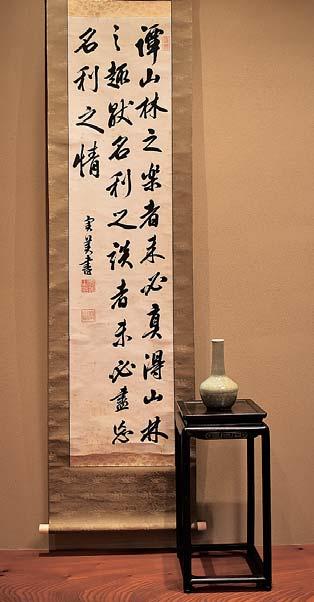 譚山林之楽者未必真得山林
之趣厭名利之談者未必盡忘
名利之情
実美書